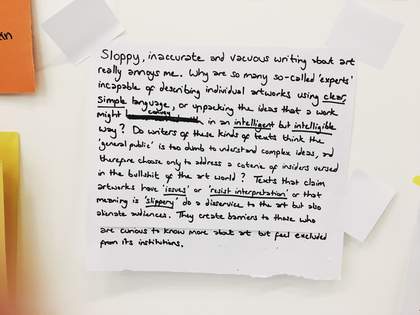 Sloppy, inaccurate and vacuous writing about art
really annoys me. Why are so many so-called 'experts'
incapable of describing individual artworks using clear,
simple language, or unpacking the ideas that a work
might convey in an intelligent but intelligible
way? Do writers of these kinds of texts think the
'general public' is too dumb to understand complex ideas, and
therefore choose only to address a coterie of insiders versed
in the bullshit of the art world? Texts that claim
artworks have 'issues' or 'resist interpretation' or that
meaning is 'slippery' do a disservice to the art but also
alienate audiences. They create barriers to those who
are curious to know more about art but feel excluded
from its institutions.